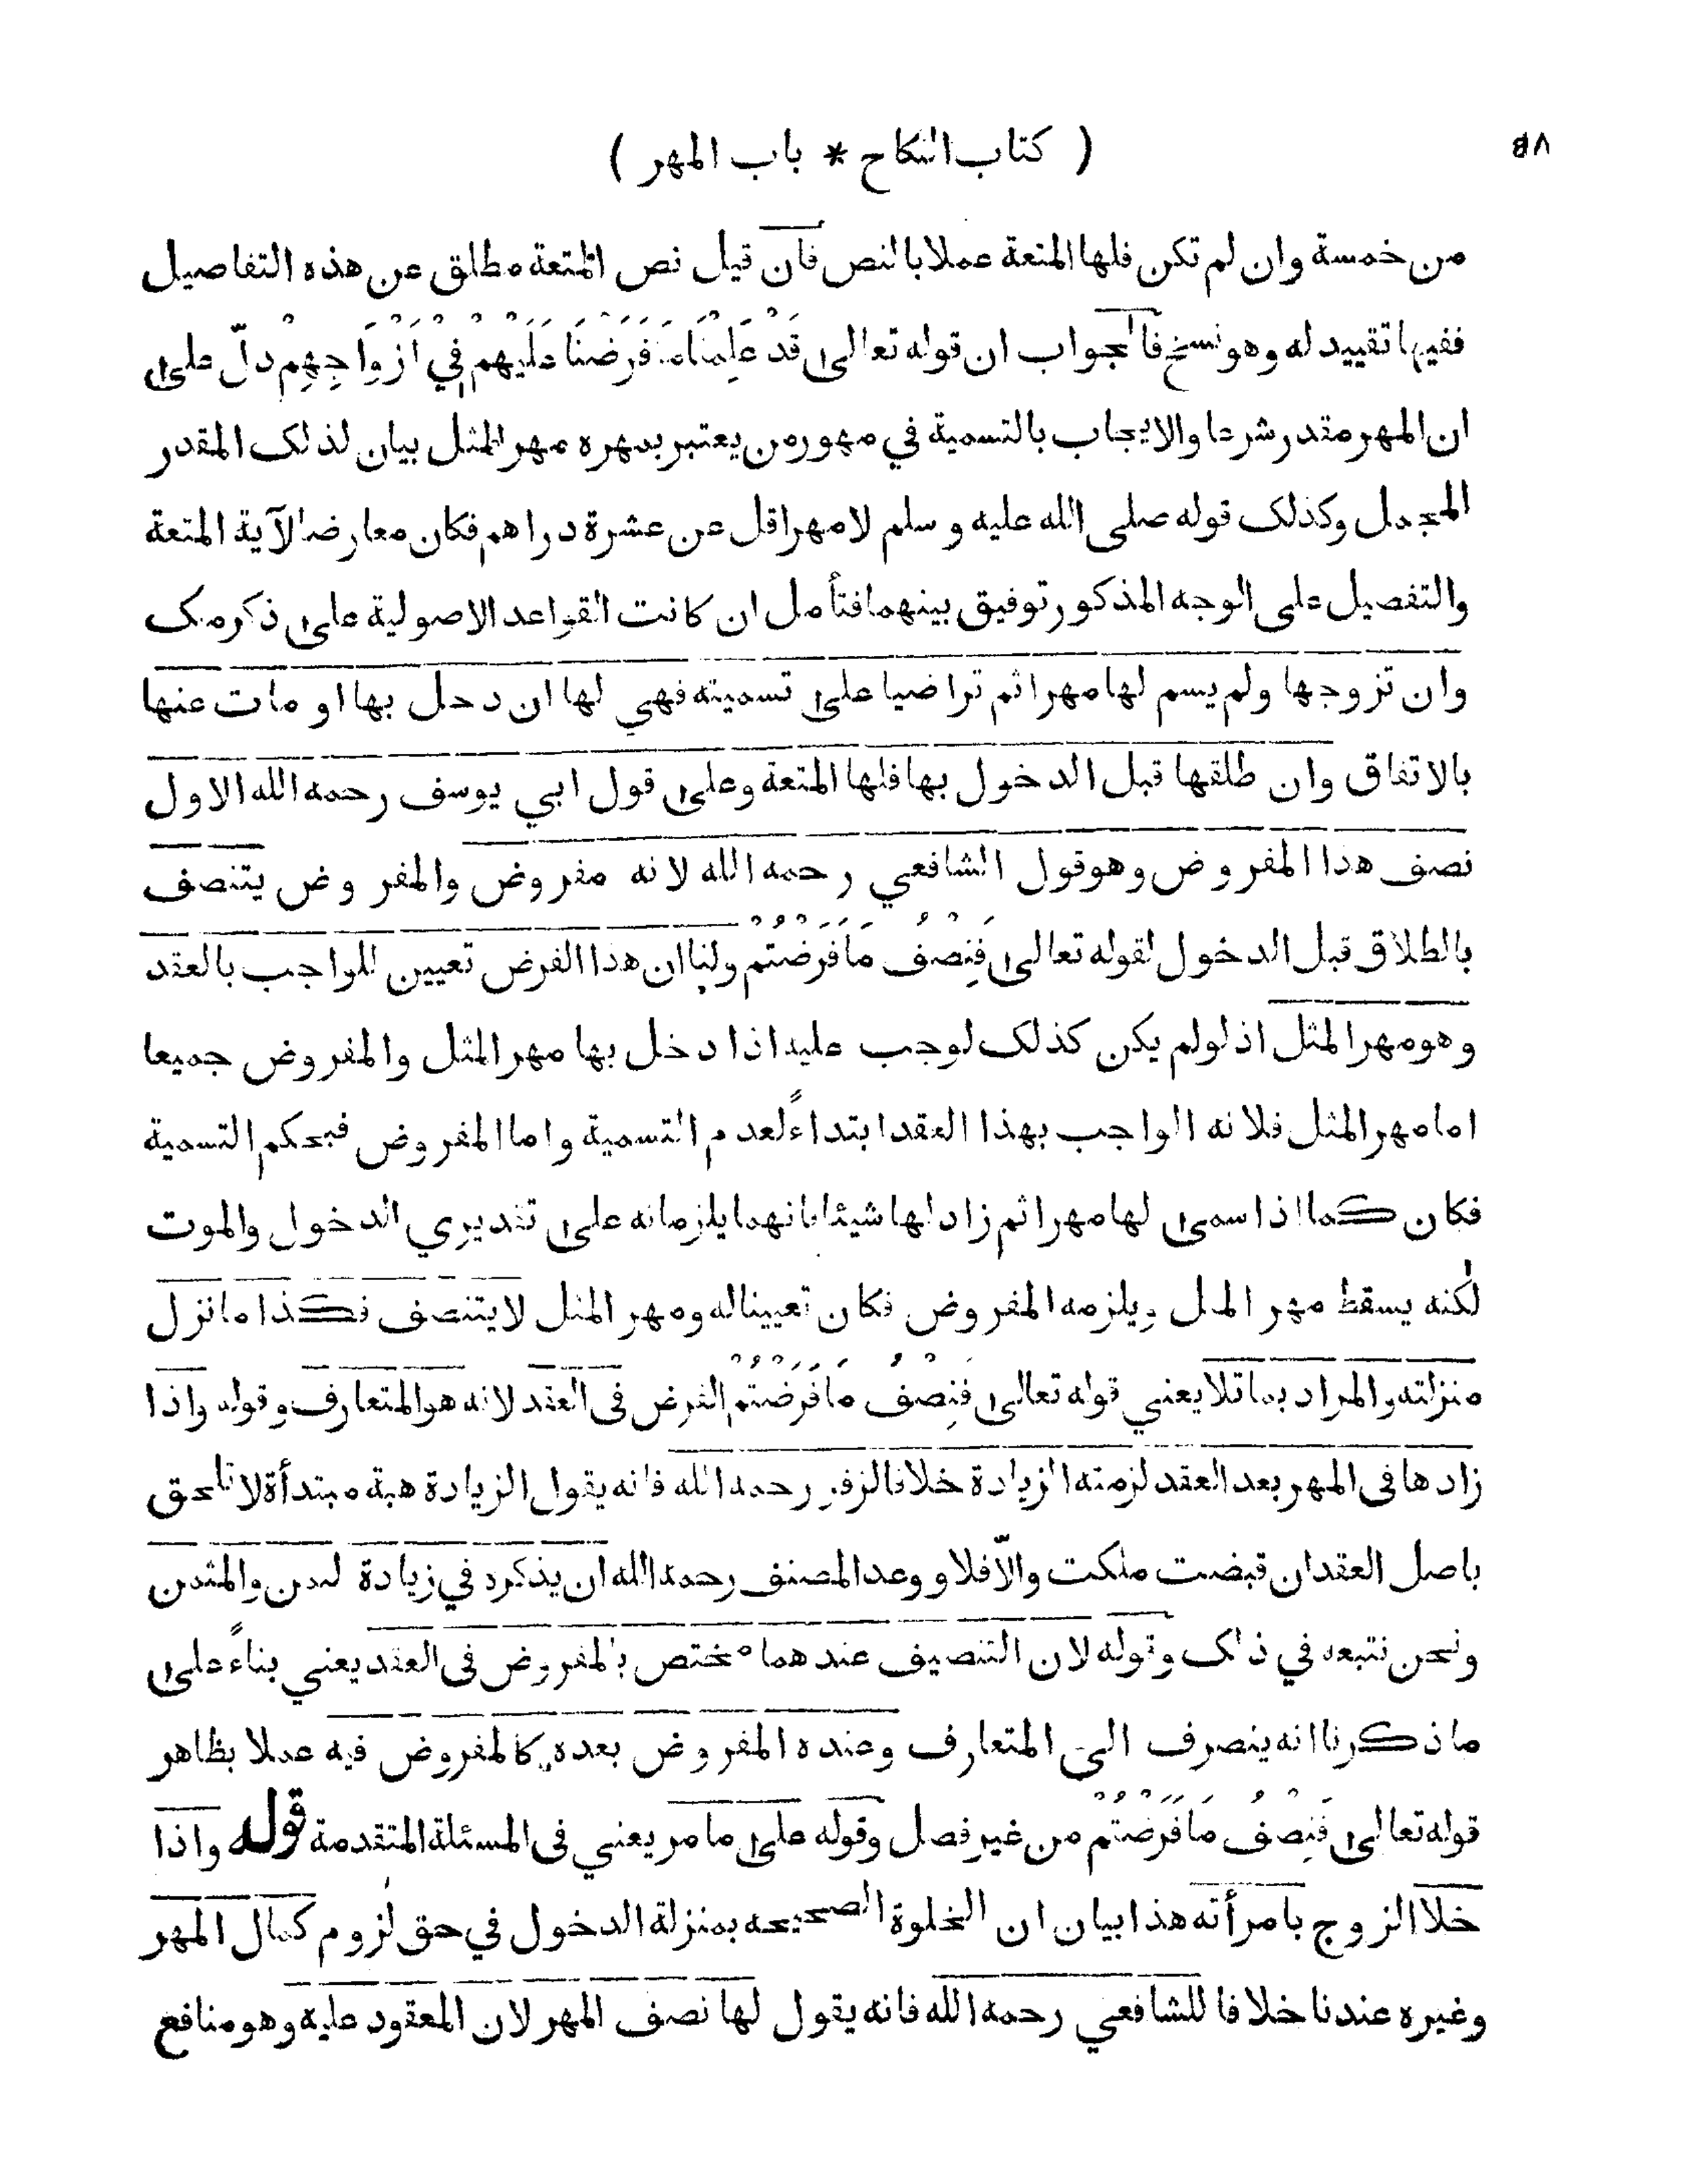 ٧٨
( كتاب النكاح * باب المهر )
من خمسة وان لم تكن فلها المتعة عملا بالنص فان قيل نص المتعة مطلق عن هذه التفاصيل
ففيها تقييد له وهو نسخ فالجواب ان قوله تعالى قَدْ عَلِمْنَا مَا فَرَضْنَا عَلَيْهِمْ فِي أَزْوَاجِهِمْ دلّ على
ان المهر مقدر شرعا والايجاب بالتسمية في مهور من يعتبر بمهره مهر المثل بيان لذلك المقدر
المجمل وكذلك قوله صلى الله عليه و سلم لا مهر اقل عن عشرة دراهم فكان معارضا لآية المتعة
والتفصيل على الوجه المذكور توفيق بينهما فتأمل ان كانت القواعد الاصولية على ذكر منك
وان تزوجها ولم يسم لها مهرا ثم تراضيا على تسميته فهي لها ان دخل بها او مات عنها
بالاتفاق وان طلقها قبل الدخول بها فلها المتعة وعلى قول ابي يوسف رحمه الله الاول
نصف هذا المفروض وهو قول الشافعي رحمه الله لانه مفروض والمفروض يتنصف
بالطلاق قبل الدخول لقوله تعالى فَنِصْفُ مَا فَرَضْتُمْ ولنا ان هذا الفرض تعيين للواجب بالعقد
وهو مهر المثل اذ لو لم يكن كذلك لوجب عليه اذا دخل بها مهر المثل والمفروض جميعا
اما مهر المثل فلانه الواجب بهذا العقد ابتداءً لعدم التسمية واما المفروض فبحكم التسمية
فكان كما اذا سمى لها مهرا ثم زاد لها شيئا فانهما يلزمانه على تقديري الدخول والموت
لكنه يسقط مهر المثل ويلزمه المفروض فكان تعيينا له ومهر المثل لا يتنصف فكذا ما نزل
منزلته والمراد بما تلا يعني قوله تعالى فَنِصْفُ مَا فَرَضْتُمْ الفرض فى العقد لانه هو المتعارف وقوله واذا
زادها فى المهر بعد العقد لزمته الزيادة خلافا لزفر رحمه الله فانه يقول الزيادة هبة مبتدأة لا تلحق
باصل العقد ان قبضت ملكت والاّ فلا و وعد المصنف رحمه الله ان يذكره في زيادة الثمن والمثمن
ونحن نتبعه في ذلك وقوله لان التنصيف عندهما مختص بالمفروض فى العقد يعني بناءً على
ما ذكرنا انه ينصرف الى المتعارف وعنده المفروض بعده كالمفروض فيه عملا بظاهر
قوله تعالى فَنِصْفُ مَا فَرَضْتُمْ من غير فصل وقوله على ما مر يعني فى المسئلة المتقدمة قوله واذا
خلا الزوج بامرأته هذا بيان ان الخلوة الصحيحه بمنزلة الدخول في حق لزوم كمال المهر
وغيره عندنا خلافا للشافعي رحمه الله فانه يقول لها نصف المهر لان المعقود عليه وهو منافع